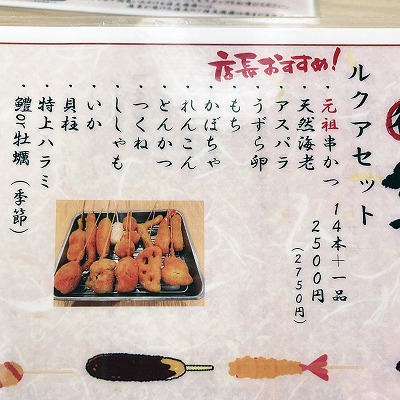 店長おすすめ!
ルクアセット
14本+一品
2500円
(2750円)
・元祖串かつ
・天然海老
・アスパラ
・うずら卵
・もち
・かぼちゃ
・れんこん
・とんかつ
・つくね
・ししゃも
・いか
・貝柱
・特上ハラミ
・鱧or牡蠣(季節)